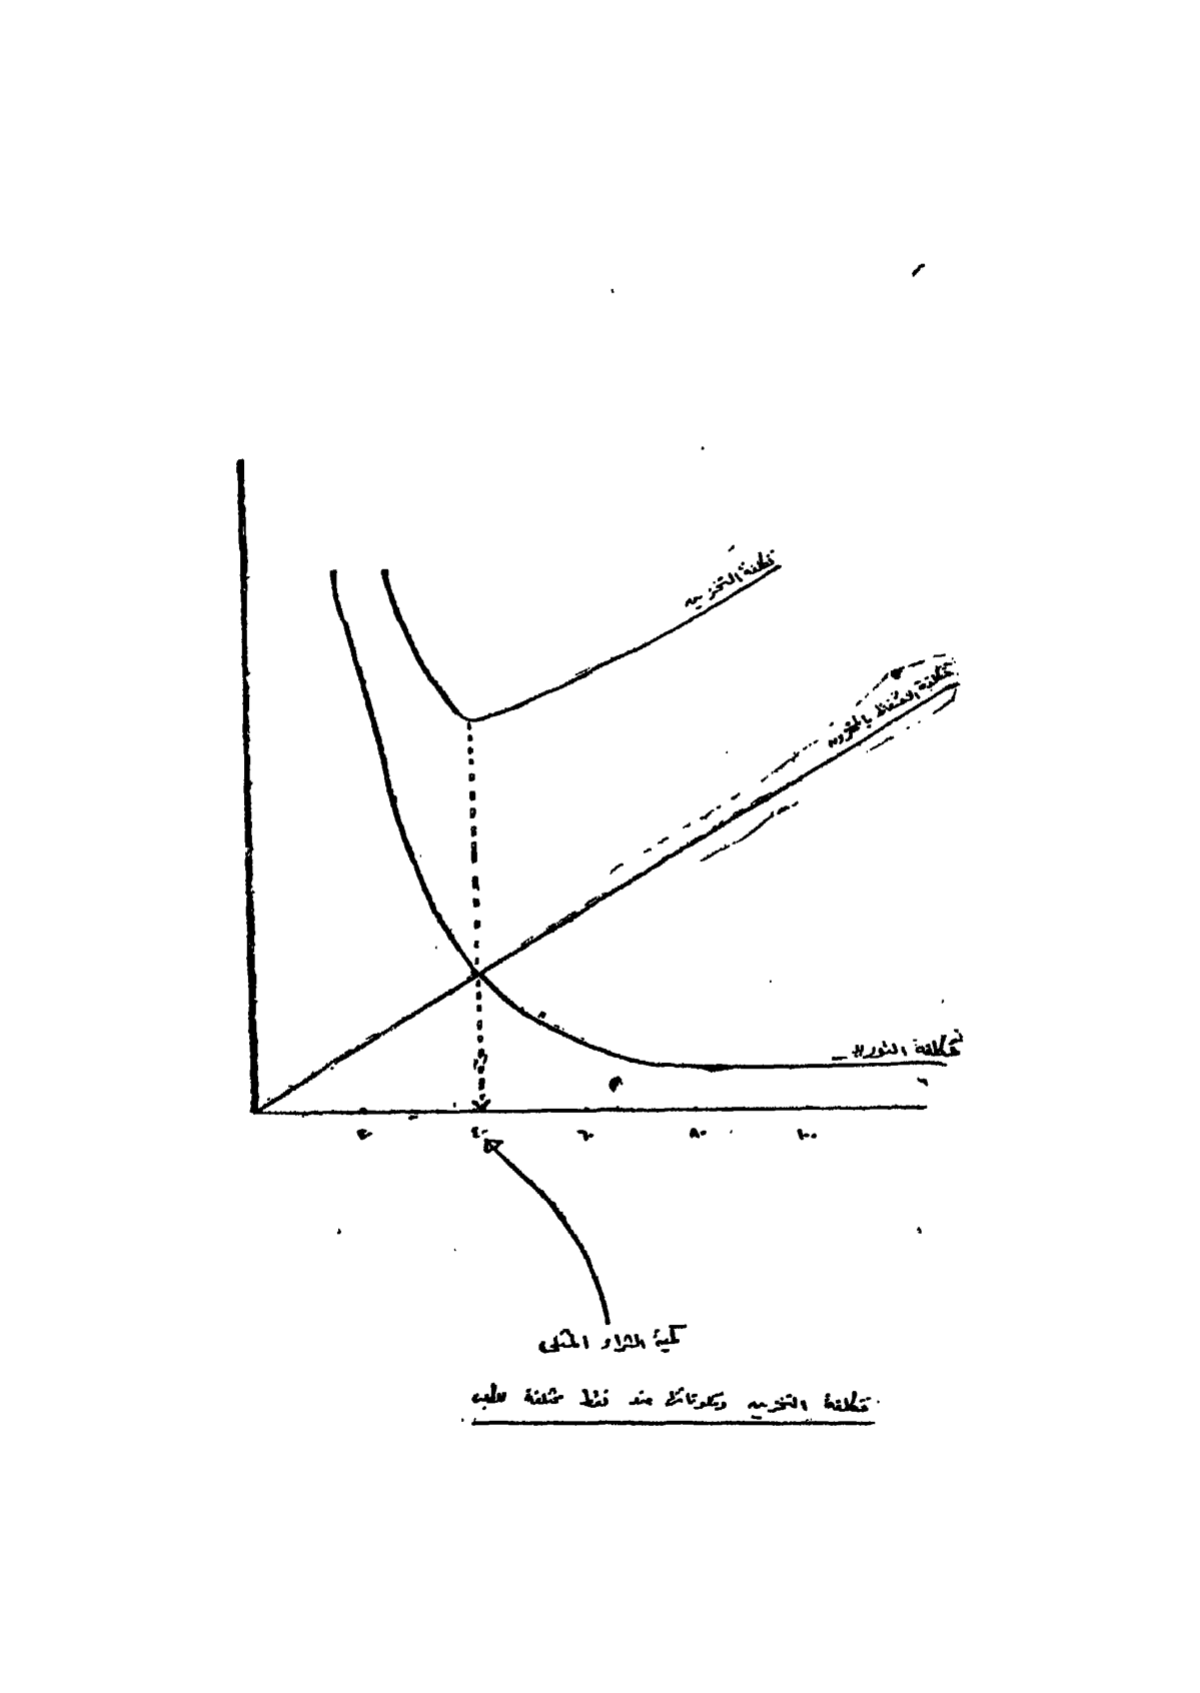 تكلفة التخزين
تكلفة الاحتفاظ بالمخزون
تكلفة التوريد
٢٠ ٤٠ ٦٠ ٨٠ ١٠٠
كمية الشراء المثلى
تكلفة التخزين ومكوناتها عند نقط مختلفة للطلب